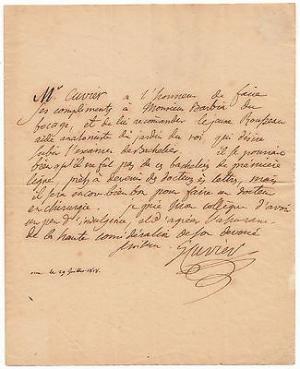 Mr Cuvier a l'honneur de faire
ses compliments à Monsieur Barbié du
bocage, et de lui recomander le jeune Rousseau
aide anatomiste du jardin du roi, qui désire
subir l'examen de bachelier. il se pourroit
bien qu'il ne fut pas de ces bacheliers de première
ligne, prêts à devenir docteurs ès lettres, mais
il sera encore bien bon pour faire un docteur
en chirurgie. je prie mon collègue d'avoir
un peu d'indulgence et d'agréer l'assurance
de la haute considération de son dévoué
serviteur
G Cuvier
ce 29 juillet